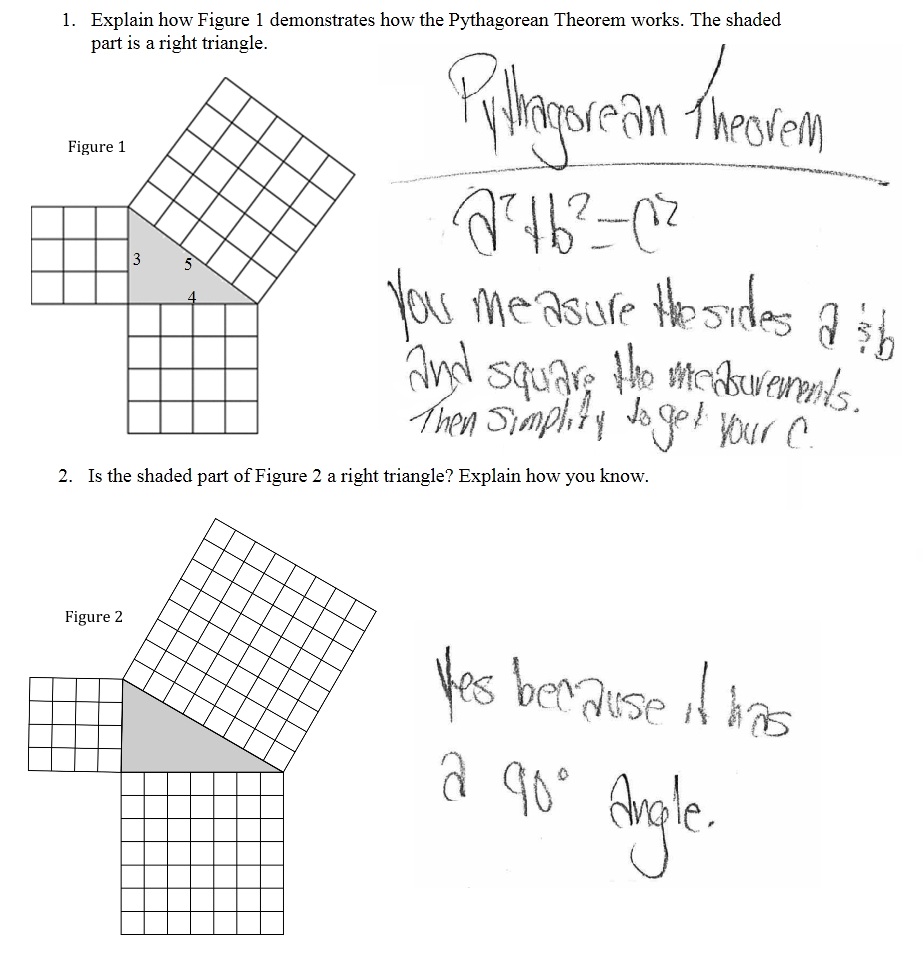 1. Explain how Figure 1 demonstrates how the Pythagorean Theorem works. The shaded
part is a right triangle.
Pythagorean Theorem
Figure 1
a²+b²=c²
3
5
4
You measure the sides a & b
and square the measurements.
Then simplify to get your c
2. Is the shaded part of Figure 2 a right triangle? Explain how you know.
Figure 2
Yes because it has
a 90° angle.